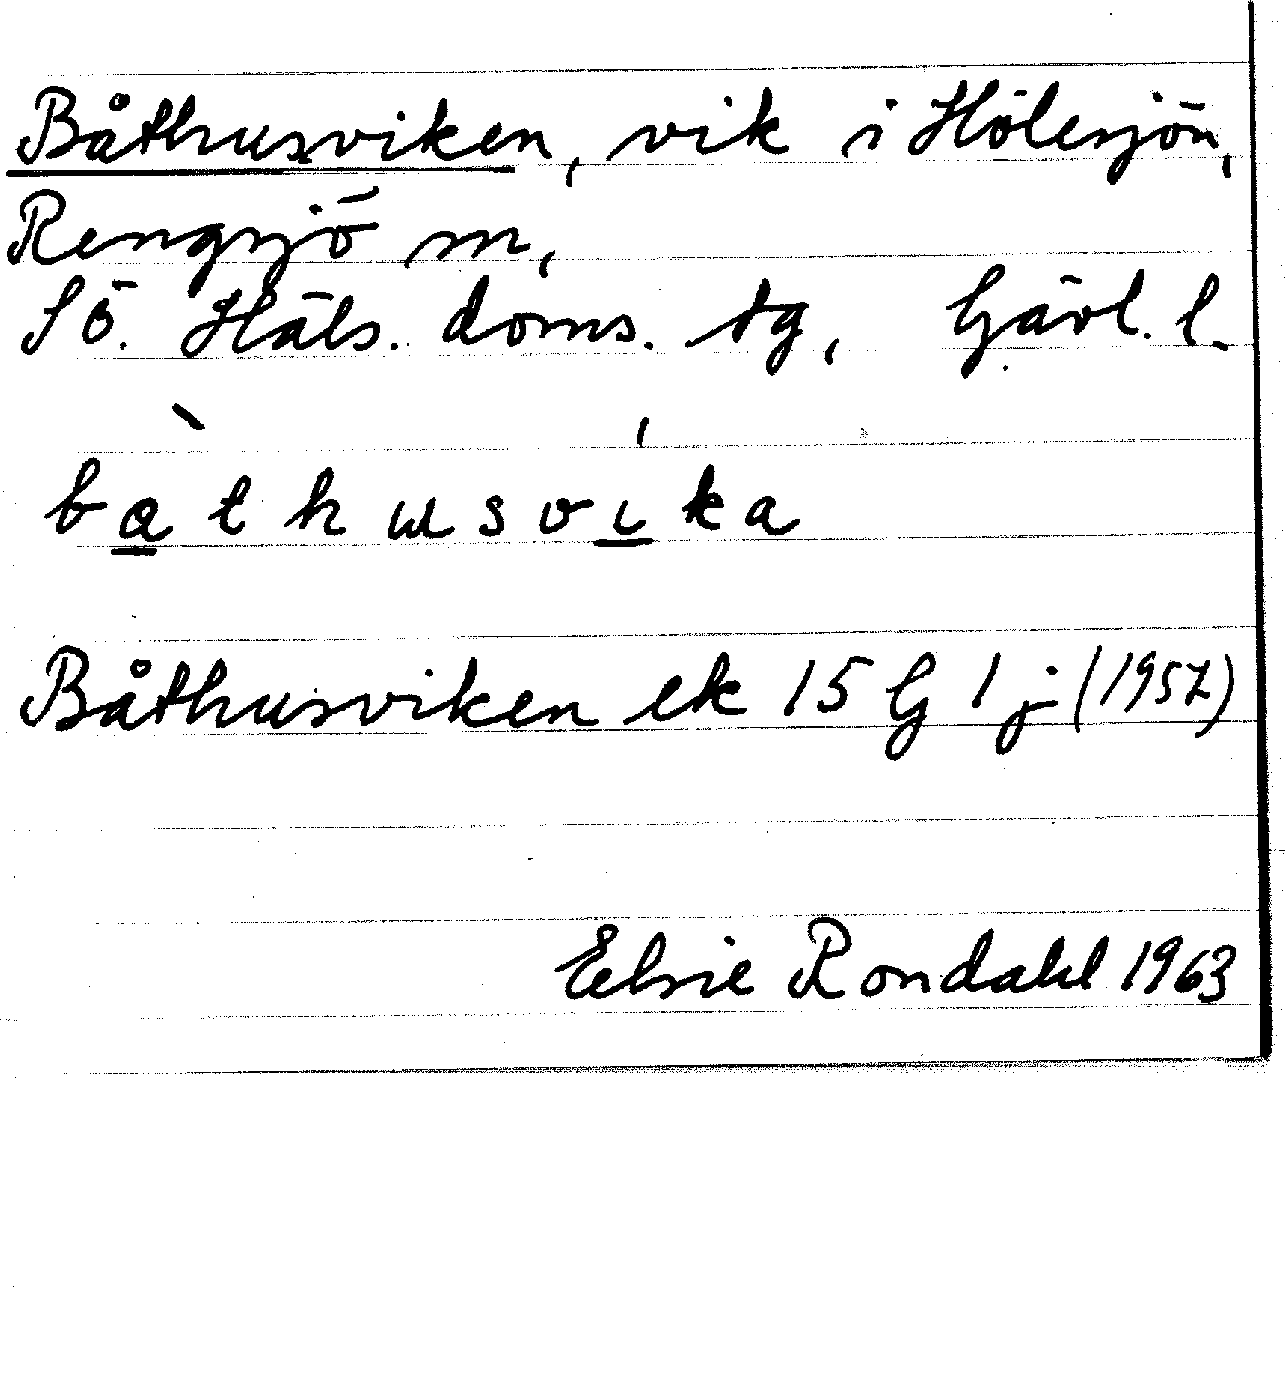 Båthusviken, vik i Hölesjön,
Rengsjö sn,
Sö. Häls. doms. tg, Gävl. l.
bathusvika
Båthusviken ek 15 G 1 j (1957)
Elsie Rondahl 1963